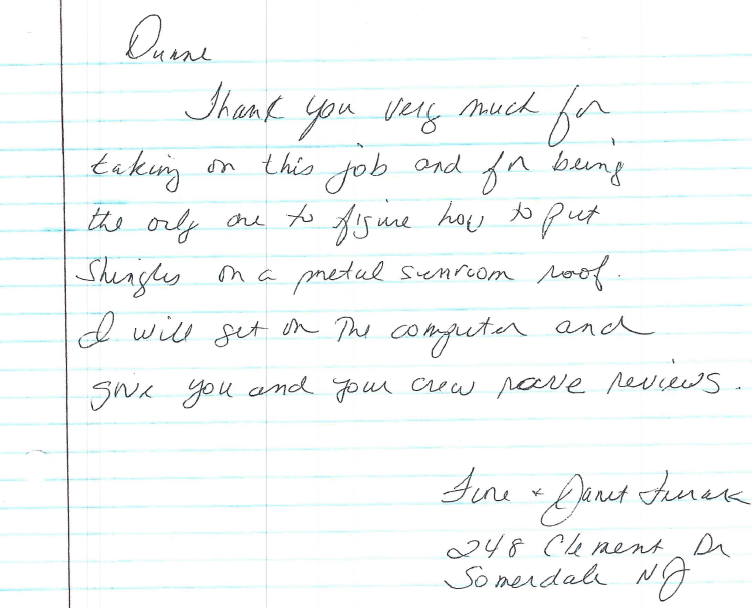 Duane
Thank you very much for
taking on this job and for being
the only one to figure how to put
Shingles on a metal sunroom roof.
I will get on The computer and
give you and your crew rave reviews.
+ Janet
248 Clement Dr
Somerdale NJ